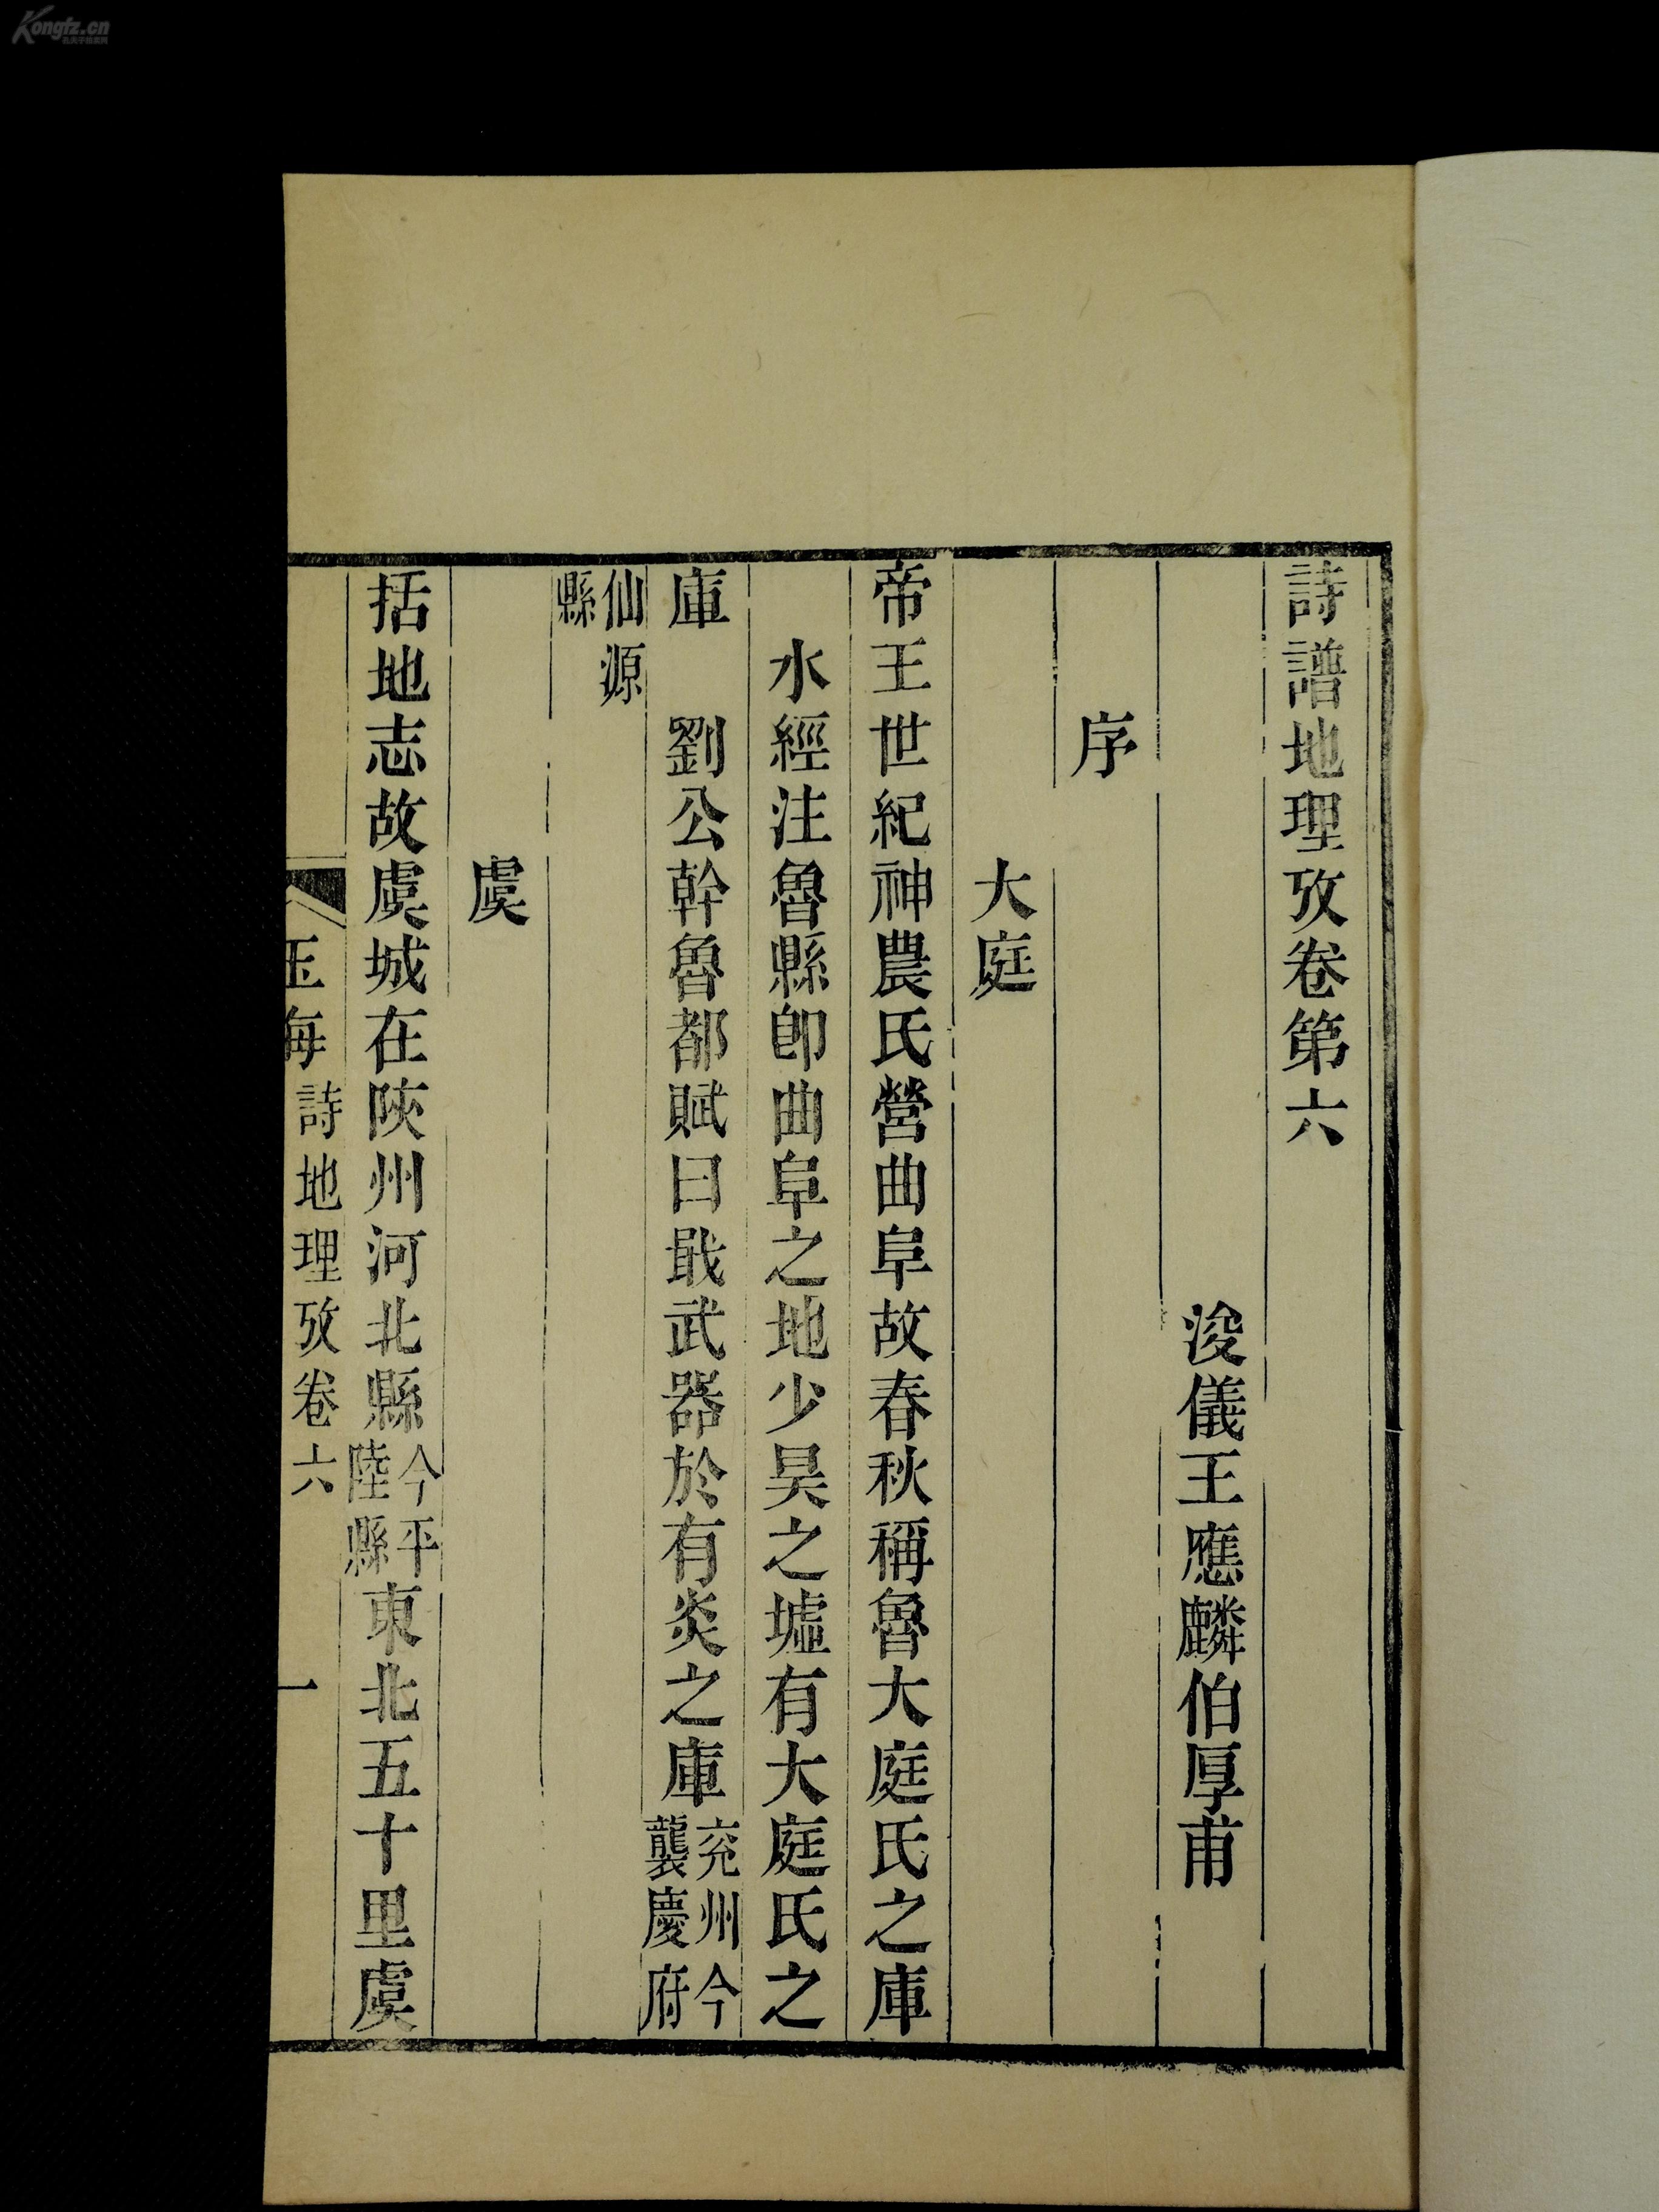 詩譜地理攷卷第六
浚儀王應麟伯厚甫
序
大庭
帝王世紀神農氏營曲阜故春秋稱魯大庭氏之庫
水經注魯縣卽曲阜之地少昊之墟有大庭氏之
庫　劉公幹魯都賦曰戢武器於有炎之庫兖州今襲慶府
仙源縣
虞
括地志故虞城在陜州河北縣今平陸縣東北五十里虞
玉海詩地理攷卷六
一
Kongfz.cn